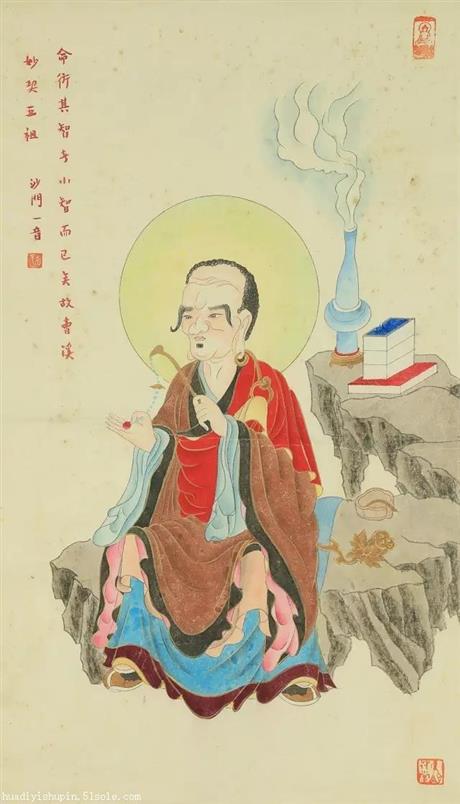 命術其智者小智而已矣故曹溪
妙契五祖
沙門一音
huadiyishupin.51sole.com